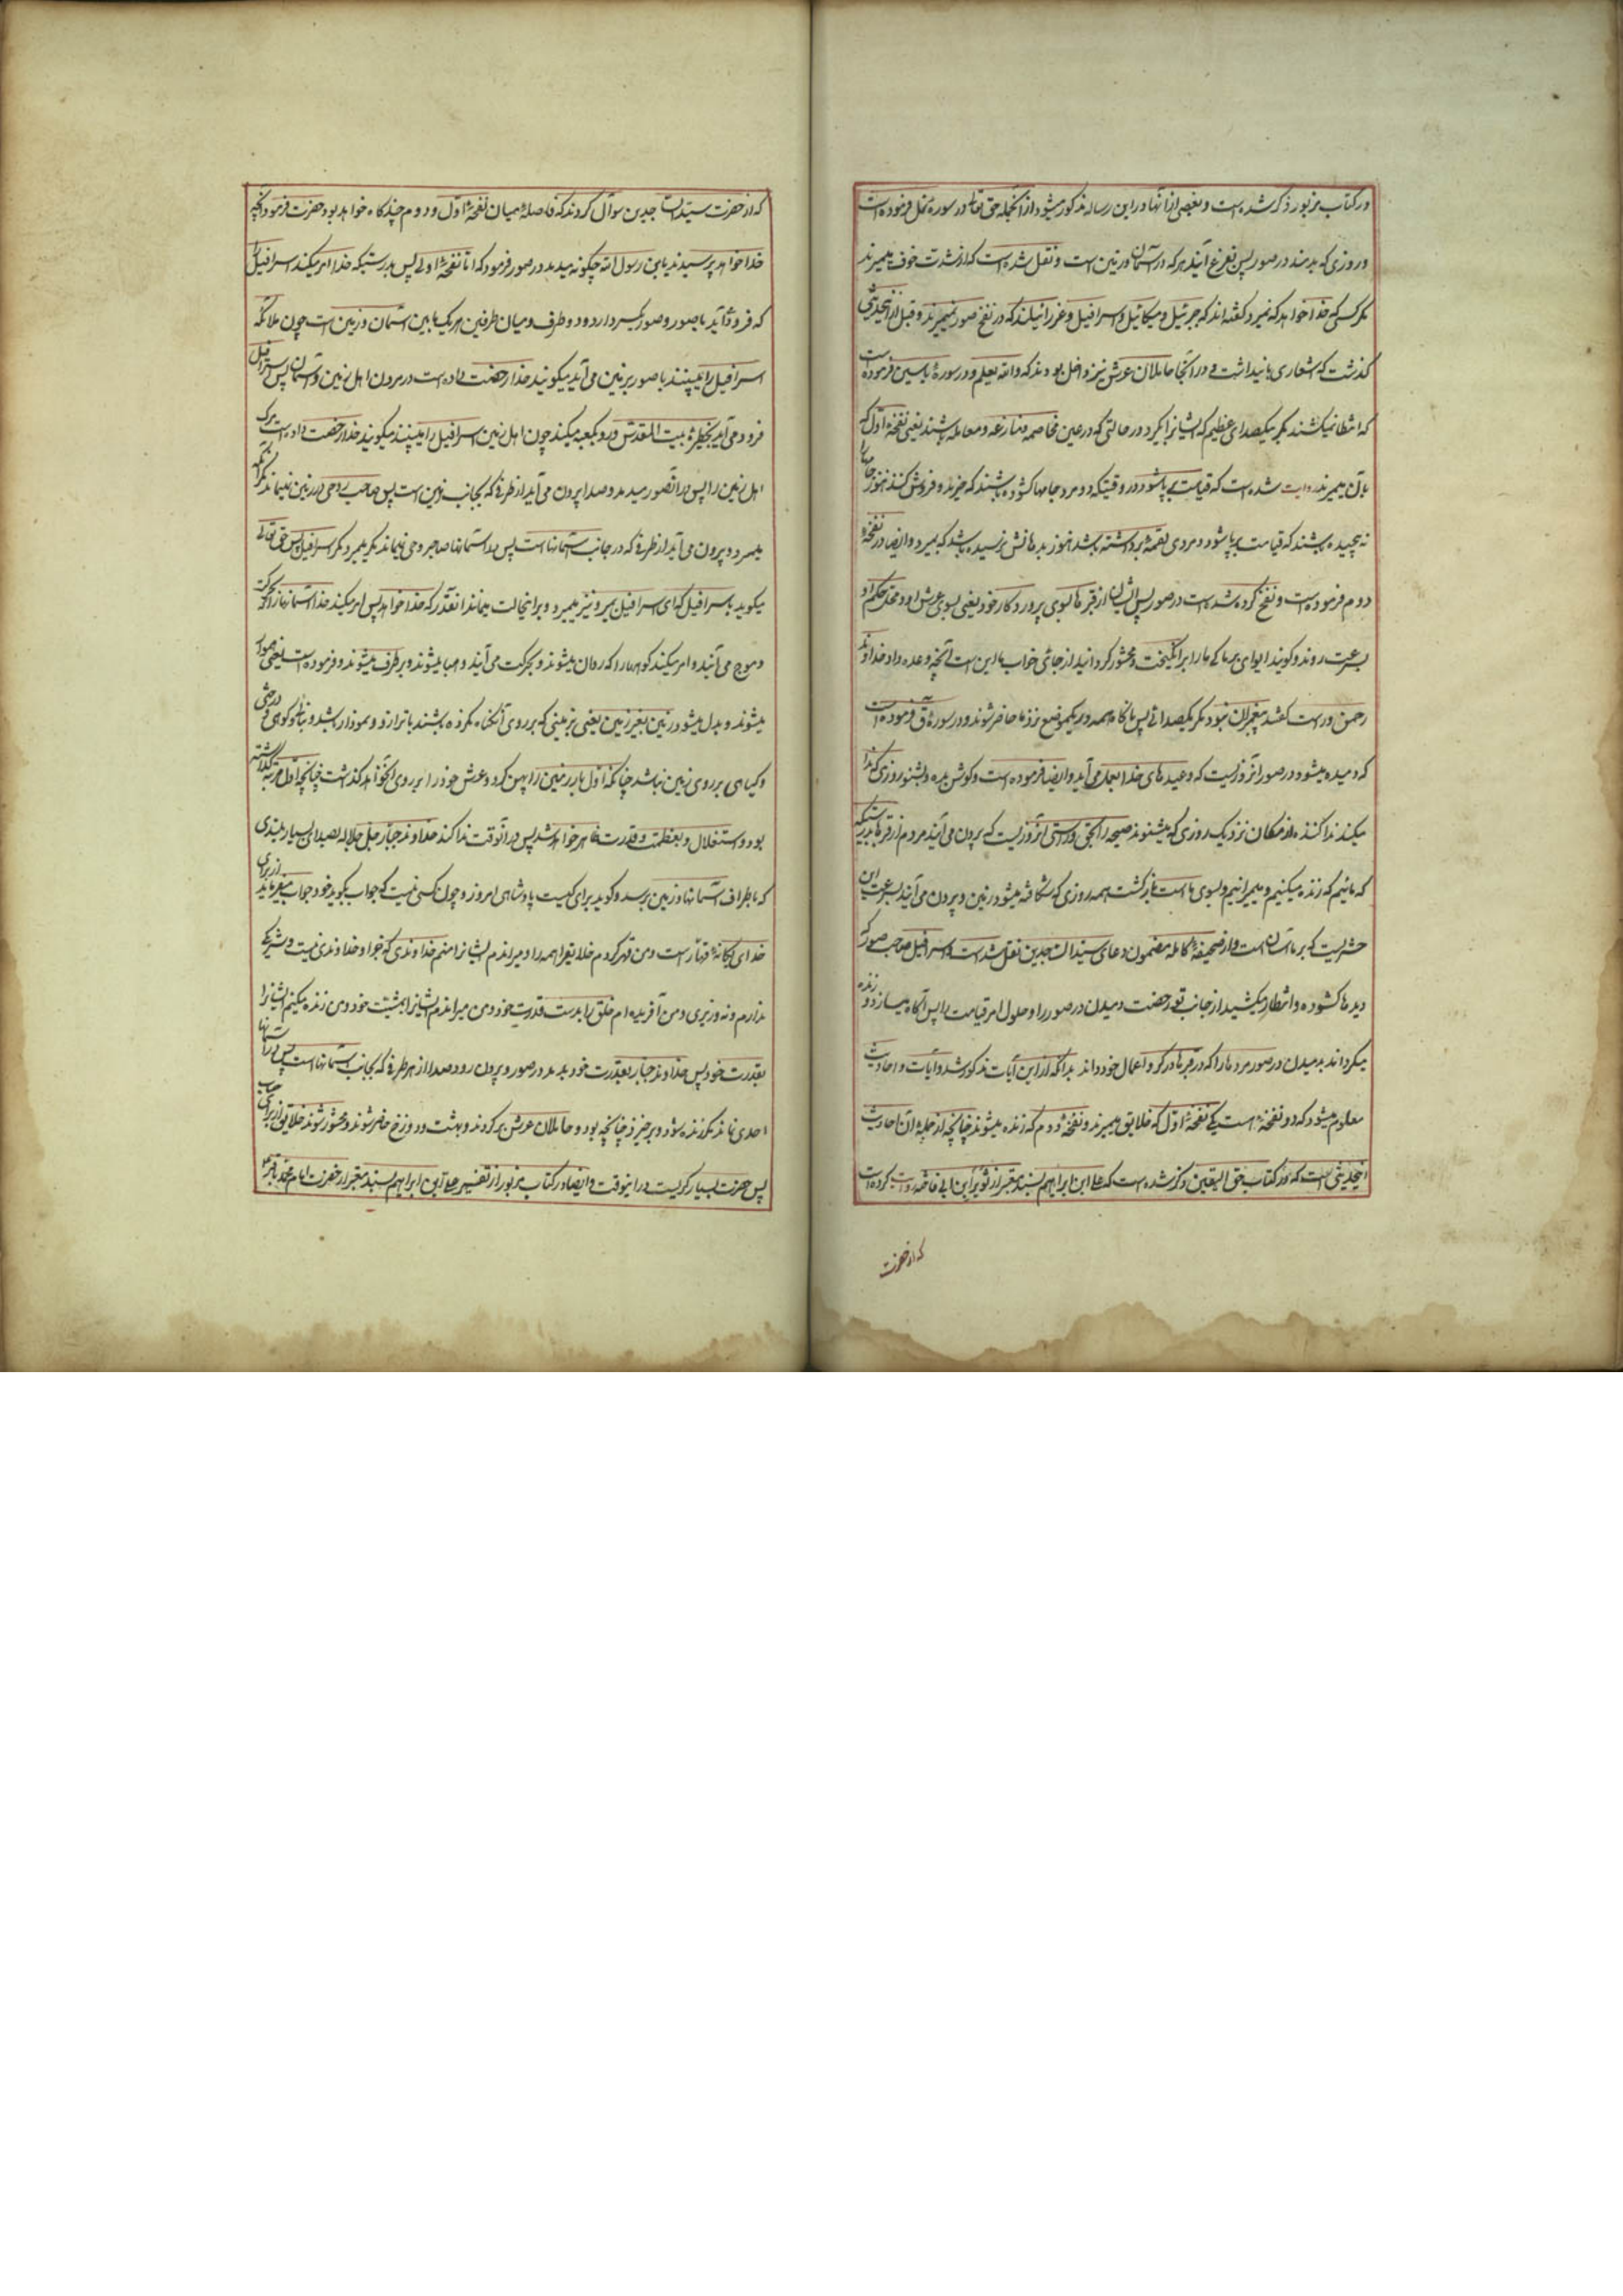 در کتاب مزبور ذکر شده است و بعضی از آنها در این رساله مذکور میشود از آنجمله حق تعالی در سورهٔ نمل فرموده است
و روزی که بدمند در صور پس بفزع آیند هر که در آسمان و زمین است و نقل شده است که از شدت خوف بمیرند
مگر کسی که خدا خواهد که نمیرد و گفته اند که جبرئیل و میکائیل و اسرافیل و عزرائیلند که در نفخ صور نمیمیرند و قبل از اینحدیثی
گذشت که اشعاری باین داشت و در آنجا حاملان عرش نیز داخل بودند که والله یعلم و در سورهٔ یاسین فرموده است
که انتظار نمیکشند مگر یکصدای عظیم که ایشانرا بگیرد در حالتی که در عین مخاصمه و منازعه و معامله باشند یعنی نفخهٔ اول که
بآن بمیرند روایت شده است که قیامت بر پا شود در وقتیکه دو مرد جامها گشوده باشند که خرید و فروش کنند هنوز جامها را
نه پیچیده باشند که قیامت بر پا شود و مردی لقمهٔ برداشته باشد هنوز بدهانش نرسیده باشد که بمیرد و ایضا در نفخهٔ
دوم فرموده است و نفخ کرده شده است در صور پس ایشان از قبرها بسوی پروردگار خود یعنی بسوی عرش او و محل حکم او
بسرعت روند و گویند ایوای بر ما که ما را برانگیخت و محشور گردانید از جای خواب ما این است آنچه وعده داد خداوند
رحمن و راست گفتند پیغمبران نبود مگر یکصدائی پس ناگاه همه در یکموضع نزد ما حاضر شوند و در سورهٔ ق فرموده است
که دمیده میشود در صور آنروزیست که وعیدهای خدا بعمل می آید و ایضا فرموده است و گوش بده و بشنو روزی که ندا
میکند ندا کننده از مکان نزدیک روزی که میشنوند صیحه را بحق و راستی آنروزیست که بیرون می آیند مردم از قبرها بدرستیکه
که مائیم که زنده میکنیم و میمیرانیم و بسوی ما است بازگشت همه روزی که شکافته میشود زمین و بیرون می آیند بسرعت این
حشریست که بر ما آسان است و از صحیفهٔ کامله مضمون دعای سید الساجدین نقل شده است و اسرافیل صاحب صور که
دیدها گشوده و انتظار میکشید از جانب تو رخصت دمیدن در صور را و حلول امر قیامت را پس آگاه میسازد و زنده
میگرداند بدمیدن در صور مردها را که در قبرها در گرو اعمال خودداند بدانکه از این آیات مذکور شد و آیات و احادیث
معلوم میشود که دو نفخه است یکی نفخهٔ اول که خلایق بمیرند و نفخهٔ دوم که زنده میشوند چنانچه از جملهٔ آن احادیث
اینحدیثی است که در کتاب حق الیقین ذکر شده است که علی ابن ابراهیم بسند معتبر از ثویر ابن ابی فاخته روایت کرده است
که از حضرت
که از حضرت سید الساجدین سوال کردند که فاصله میان نفخهٔ اول و دوم چندگاه خواهد بود حضرت فرمود آنچه
خدا خواهد پرسیدند یابن رسول الله چگونه میدمد در صور فرمود که اما نفخهٔ اولی پس بدرستیکه خدا امر میکند اسرافیل را
که فرود آید با صور و صور یکسر دارد و دو طرف و میان طرفین هر یک مابین آسمان و زمین است چون ملائکه
اسرافیل را میبینند با صور بزمین می آید میگویند خدا رخصت داده است در مردن اهل زمین و آسمان پس اسرافیل
فرود می آید بحظیرهٔ بیت المقدس و رو بکعبه میکند چون اهل زمین اسرافیل را میبینند میگویند خدا رخصت داده است بمرک
اهل زمین را پس در آنصور میدمد و صدا بیرون می آید از طرفی که بجانب زمین است پس صاحب روحی در زمین نمیماند مگر آنکه
بمیرد و بیرون می آید از طرفی که در جانب آسمانها است پس در آسمانها صاحب روحی نمیماند مگر بمیرد مگر اسرافیل پس حق تعالی
میگوید باسرافیل که ای اسرافیل بمیر و نیز بمیرد و بر اینحالت بمانند آنقدر که خدا خواهد پس امر میکند خدا آسمانها را که بحرکت
و موج می آیند و امر میکند کوهها را که روان میشوند و بحرکت می آیند و هبا میشوند و برطرف میشوند و فرموده است یعنی هموار
میشوند و بدل میشود زمین بغیر زمین یعنی بزمینی که بر روی آن گناه نکرده باشند بارز و نمودار باشد و بنا و کوهی و درختی
و گیاهی بر روی زمین نباشد چنانکه اول بار زمین را پهن کرد و عرش خود را بر روی آب خواهد گذاشت چنانچه اول مرتبه گذاشته
بود و استقلال و بعظمت و قدرت ظاهر خواهد شد پس در آنوقت ندا کند خداوند جبار جل جلاله بصدای بسیار بلندی
که باطراف آسمانها و زمین برسد و گوید برای کیست پادشاهی امروز و چون کسی نیست که جواب بگوید خود جواب میفرماید از برای
خدای یگانهٔ قهار است و من قهر کردم خلایق را همه را و میراندم ایشانرا منم خداوندی که بجز او خداوندی نیست و شریکی
ندارم و نه وزیری و من آفریده ام خلق را بدست قدرت خود و من میراندم ایشانرا بمشیت خود و من زنده میکنم ایشانرا
بقدرت خود پس خداوند جبار بقدرت خود بدمد در صور و بیرون رود صدا از هر طرفی که بجانب آسمانها است پس در آسمانها
احدی نماند مگر زنده شود و برخیزد چنانچه بود و حاملان عرش برگردند و بهشت و دوزخ حاضر شوند و محشور شوند خلایق از برای حساب
پس حضرت بسیار گریست در اینوقت و ایضا در کتاب مزبور از تفسیر علی ابن ابراهیم بسند معتبر از حضرت امام محمد باقر